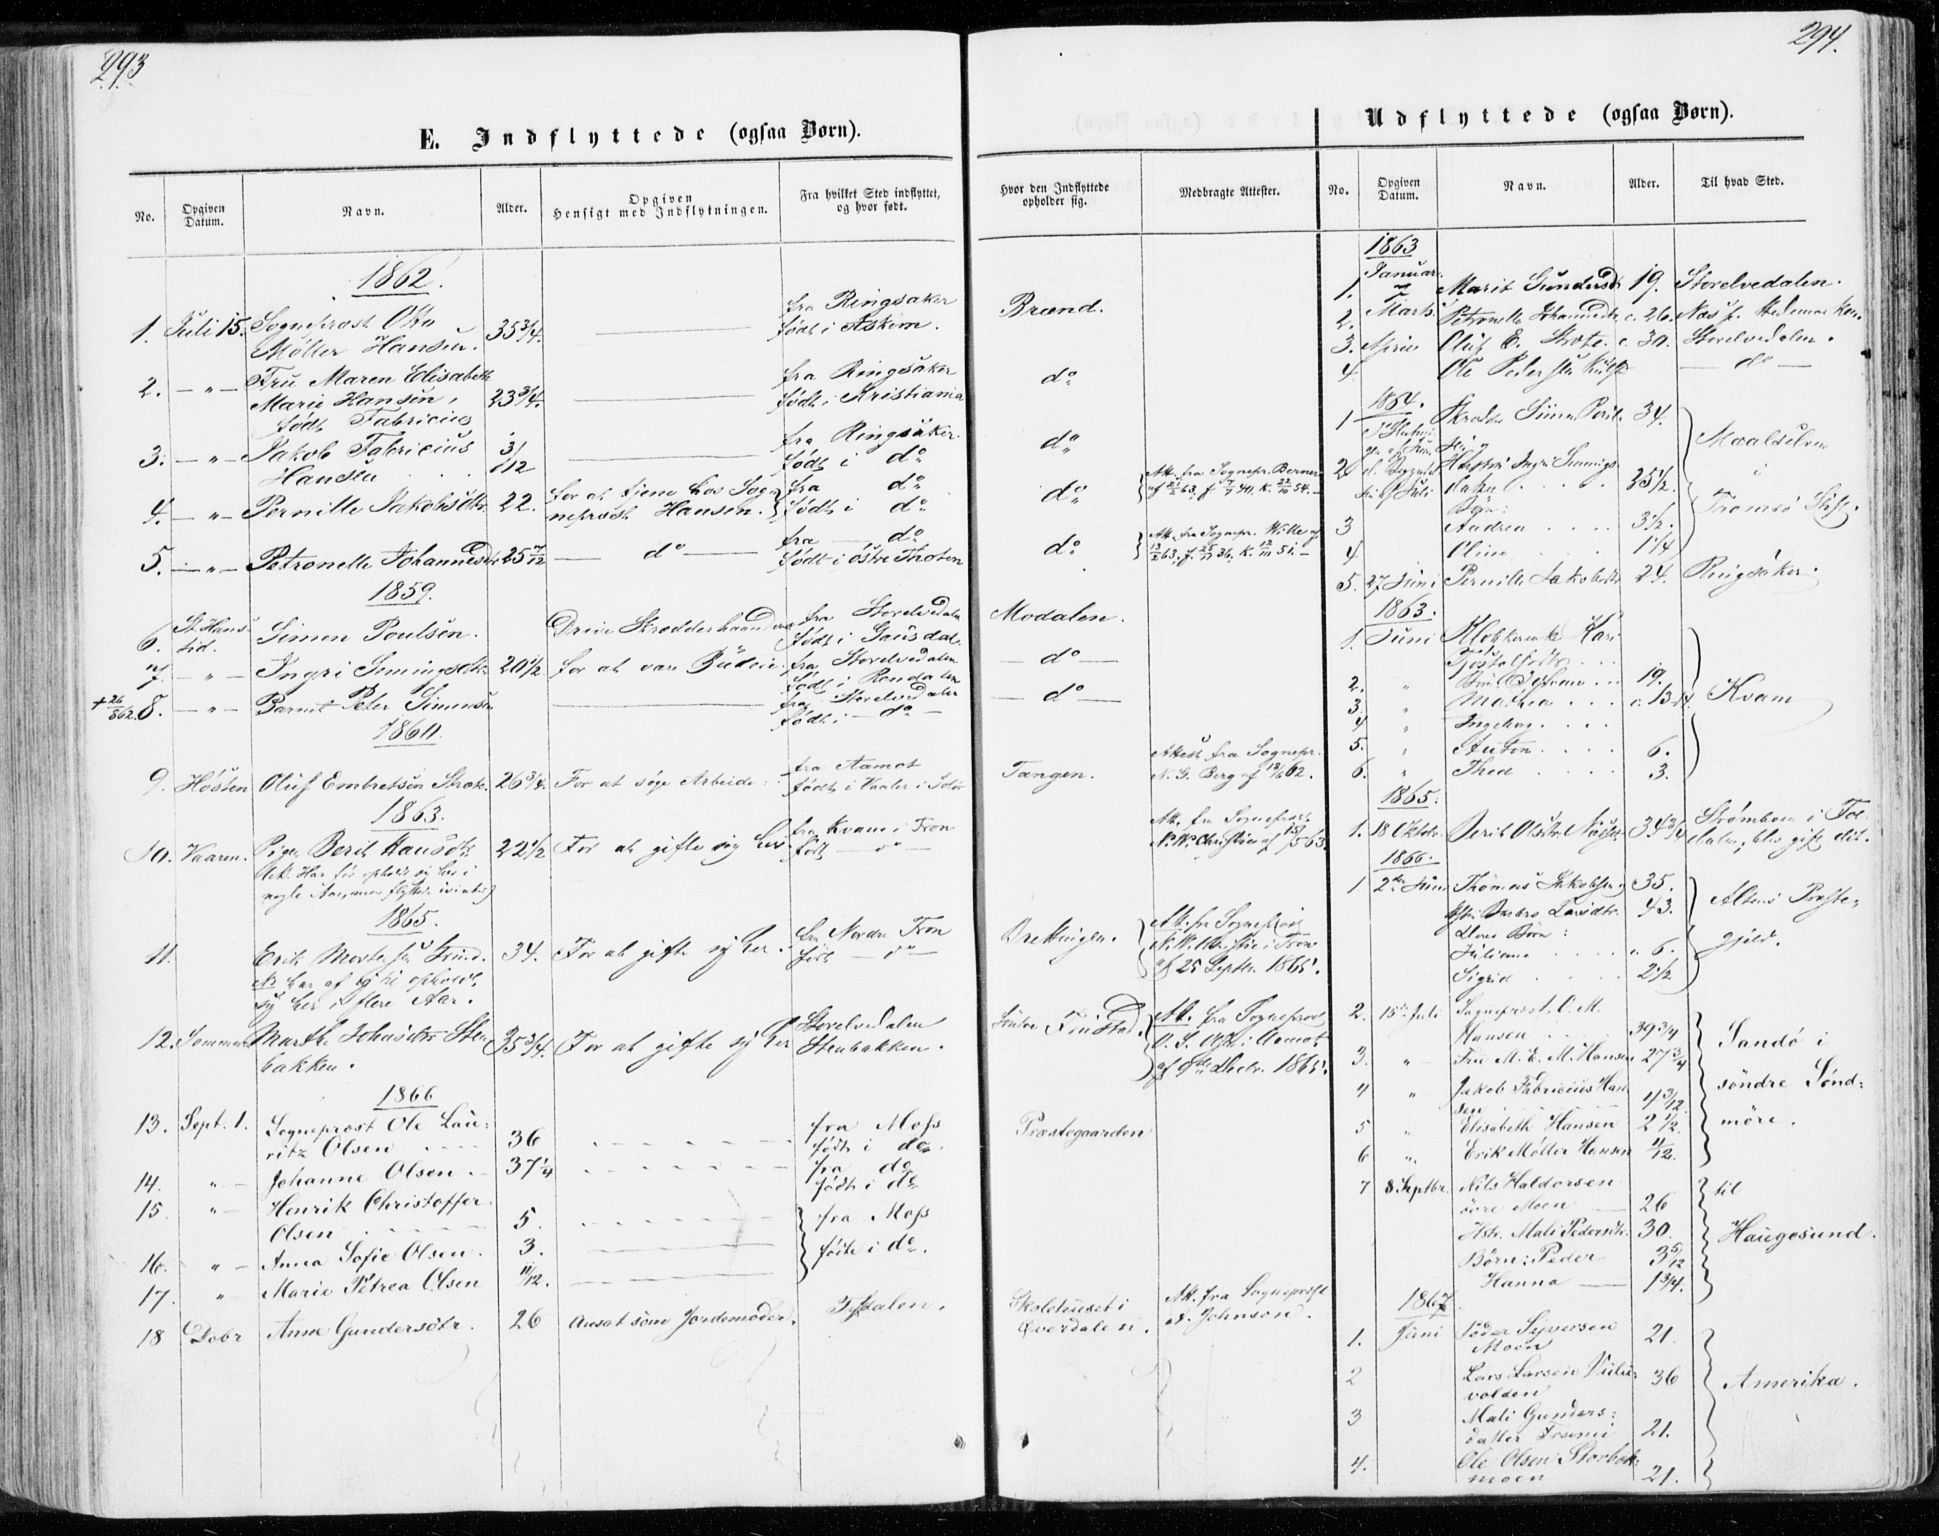 293
E. Indflyttede (ogsaa Børn).
No. Opgiven Datum. Navn. Alder. Opgiven Hensigt med Indflytningen. Fra hvilket Sted indflyttet, og hvor født.
1862.
1. Juli 15. Sogneprest Otto 35 3/4. fra Ringsaker
Møller Hansen. født i Askim.
2. — " — Fru Maren Elisabeth fra Ringsaker
Marie Hansen, 23 3/4. født i Kristiania
født Fabricius
3. — " — Jakob Fabricius 3/12 fra Ringsaker
Hansen født i do
4. — " — Pernille Jakobsdtr. 22. for at tjene hos Sog- fra do
neprest Hansen. født i do
5. — " — Petronelle Johannesdtr 25 7/12 — do — fra — do
født i østre Thoten
1859.
6. St. Hans- Simen Poulsen. Drive Skrædderhaandv. fra Storelvedalen
tid. født i Gausdal.
7. — " — Ingri Simingsdtr. 20 1/2 for at være Budeie. fra Storelvedalen
født i Rendalen
+ 26/8 62. 8. — " — Barnet Peter Simensen fra Storelvedalen
født i — do —
1860.
9. Høsten Oluf Embretsen Strate. 26 3/4. For at søge Arbeide. fra Aamot
født i Vaaler i Solør
1863.
10. Vaaren. Pigen Berit Hansdtr. 22 1/2 For at gifte sig her. fra Kvam i Fron
født — do —
nogle Aar, men flyttede
1865.
11. Erik Mortensen 34. For at gifte sig her. fra Nordre Fron
født — do —
har af og til opholdt
sig her i flere Aar.
12. Sommeren Marthe Johnsdtr. Sten- 35 3/4. For at gifte sig her Storelvedalen
bakken. Stenbakken.
1866
13. Sept. 1. Sogneprest Ole Lau- fra Moss
ritz Olsen 36 født i do.
14. " — Johanne Olsen 37 1/4 fra do
født i do
15. " — Henrik Christoffer fra Moss
Olsen 5.
16. " — Anna Sofie Olsen. 3. født i do.
17. " — Marie Petrea Olsen 11/12.
18 Debr Anne Gundersdtr. 26 Ansat som Jordemoder. Tyldalen.
294.
Hvor den Indflyttede opholder sig. Medbragte Attester.
Brænd.
do
do
do Att. fra Sognepr. Berner
do Att. fra Sognepr. Wille af
Modalen.
— do —
— do —
Tangen. Attest fra Sognepr.
N. G. Berg af 18/ 62.
Att. fra Sogneprest
N. W. Christie af
Brekningen. Att. fra Sogneprest
N. W. Christie i Fron
af 25 Septbr. 1865.
Søndre Finstad. Att. fra Sogneprest
i Aamot
1865.
Præstegaarden
Skolehuset i Att. fra Sogneprest
Øverdalen. Johnson.
Udflyttede (ogsaa Børn).
No. Opgiven Datum. Navn. Alder. Til hvad Sted.
1863
1. Januar Marit Gundersdtr 19. Storelvedalen.
2. Marts Petronelle Johannesdtr. c. 26. Næs p. Hedemarken.
3. April Oluf E. Strate. c. 30. Storelvedalen.
4 Ole Pedersen — do —
1864.
1 Skrædder Simen Poul- 34. Maalselven
sen i
2 Hustru Ingri Simings- 25 1/2. Tromsø Stift.
datter
Børn:
3 Andrea 3 1/2.
4 Oline 1 1/4
5. 27 Juni Pernille Jakobsdtr 24. Ringsaker.
1863.
1. Juni Klokkerenke Kari
2. " 19. Kvam
3. " Mathea c. 13
4 " Ingeborg
5. " Anton 6.
6. " Thea 3.
1865.
1. 18 Oktbr. Berit Olsdtr. 34 3/4 Strømboen i Fol-
dalen, blev gift dit.
1866.
1 2den Juni Thomas Jakobsen 35. Altens Præste-
Hstr. Barbro Larsdtr. 43. gjeld.
Deres Børn:
Juliane 6.
Sigrid 2 1/2
2. 15de Juli Sogneprest O. M.
Hansen 39 3/4 Sandø i
3. " — Fru M. E. M. Hansen 27 3/4 søndre Sønd-
4 " Jakob Fabricius Han- møre.
sen 4 3/12.
5 " Elisabeth Hansen 2 1/2.
6 " Erik Møller Hansen 4/12.
7 8 Septbr. Nils Haldorsen til
øvre Moen 26 Haugesund.
Hstr. Mali Pedersdtr. 30.
Børn: Peder 3 5/12
Hanna — 1 3/4.
1867.
1. Juni Peder Syversen 21. Amerika.
Moen
2 Lars Larsen 36
volden
3 Mali Gunders-
datter 21.
4. Ole Olsen Storbek-
moen 21.